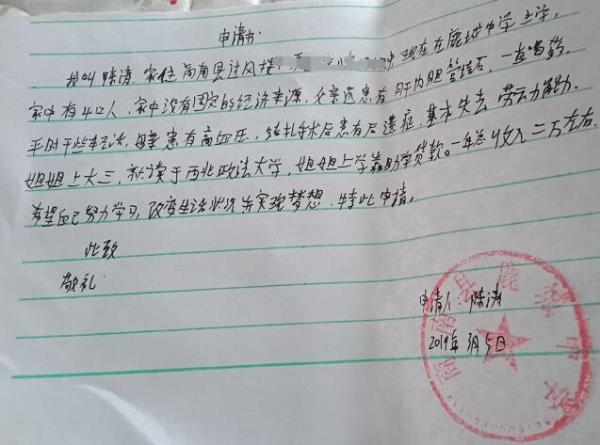 申请书
我叫陈涛,家住商南县过风楼 现在在鹿城中学上学,
家中有4口人,家中没有固定的经济来源,父亲还患有肝内胆管结石,一直喝药,
平时干些轻活,母亲患有高血压,结扎手术后患有后遗症,基本失去劳动力能力.
姐姐上大三,就读于西北政法大学,姐姐上学靠助学贷款。一年总收入二万左右.
希望自己努力学习,改变生活状况并实现梦想.特此申请。
此致
敬礼
申请人:陈涛
2019年3月5日
商南县鹿城中学